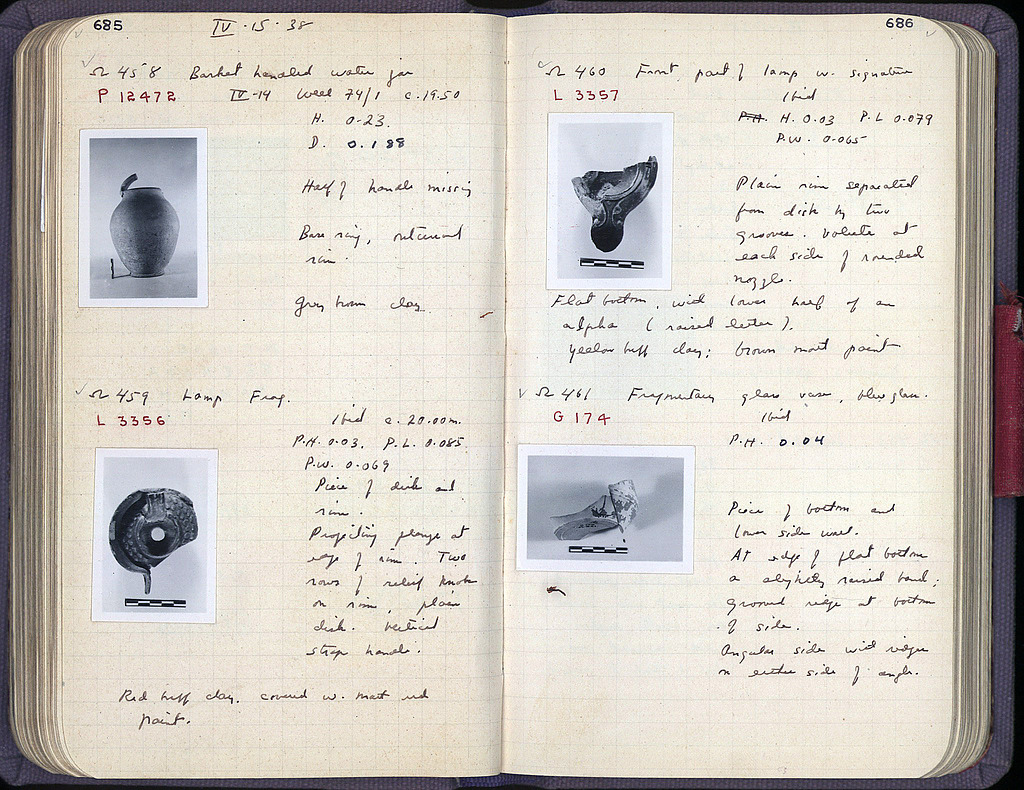 685
IV · 15 · 38
Ω 458 Basket handled water jar
P 12472 IV-14 Well 74/1 c. 19.50
H. 0.23.
D. 0.188
Half of handle missing
Base ring, outcurved
rim.
Grey brown clay.
Ω 459 Lamp Frag.
L 3356 Ibid c. 20.00m.
P.H. 0.03. P.L. 0.085
P.W. 0.069
Piece of disk and
rim.
Projecting flange at
edge of rim. Two
rows of relief knobs
on rim, plain
disk. Vertical
strap handle.
Red buff clay. covered w. matt red
paint.
686
Ω 460 Front part of lamp w. signature
L 3357 Ibid
P.H. H. 0.03 P.L 0.079
P.W. 0.065
Plain rim separated
from disk by two
grooves. Volute at
each side of rounded
nozzle.
Flat bottom, with lower half of an
alpha (raised letter).
Yellow buff clay: brown matt paint
Ω 461 Fragmentary glass vase, blue glass.
G 174 Ibid
P.H. 0.04
Piece of bottom and
lower side wall.
At edge of flat bottom
a slightly raised band;
grooved ridge at bottom
of side.
Angular side with ridges
on either side of angle.